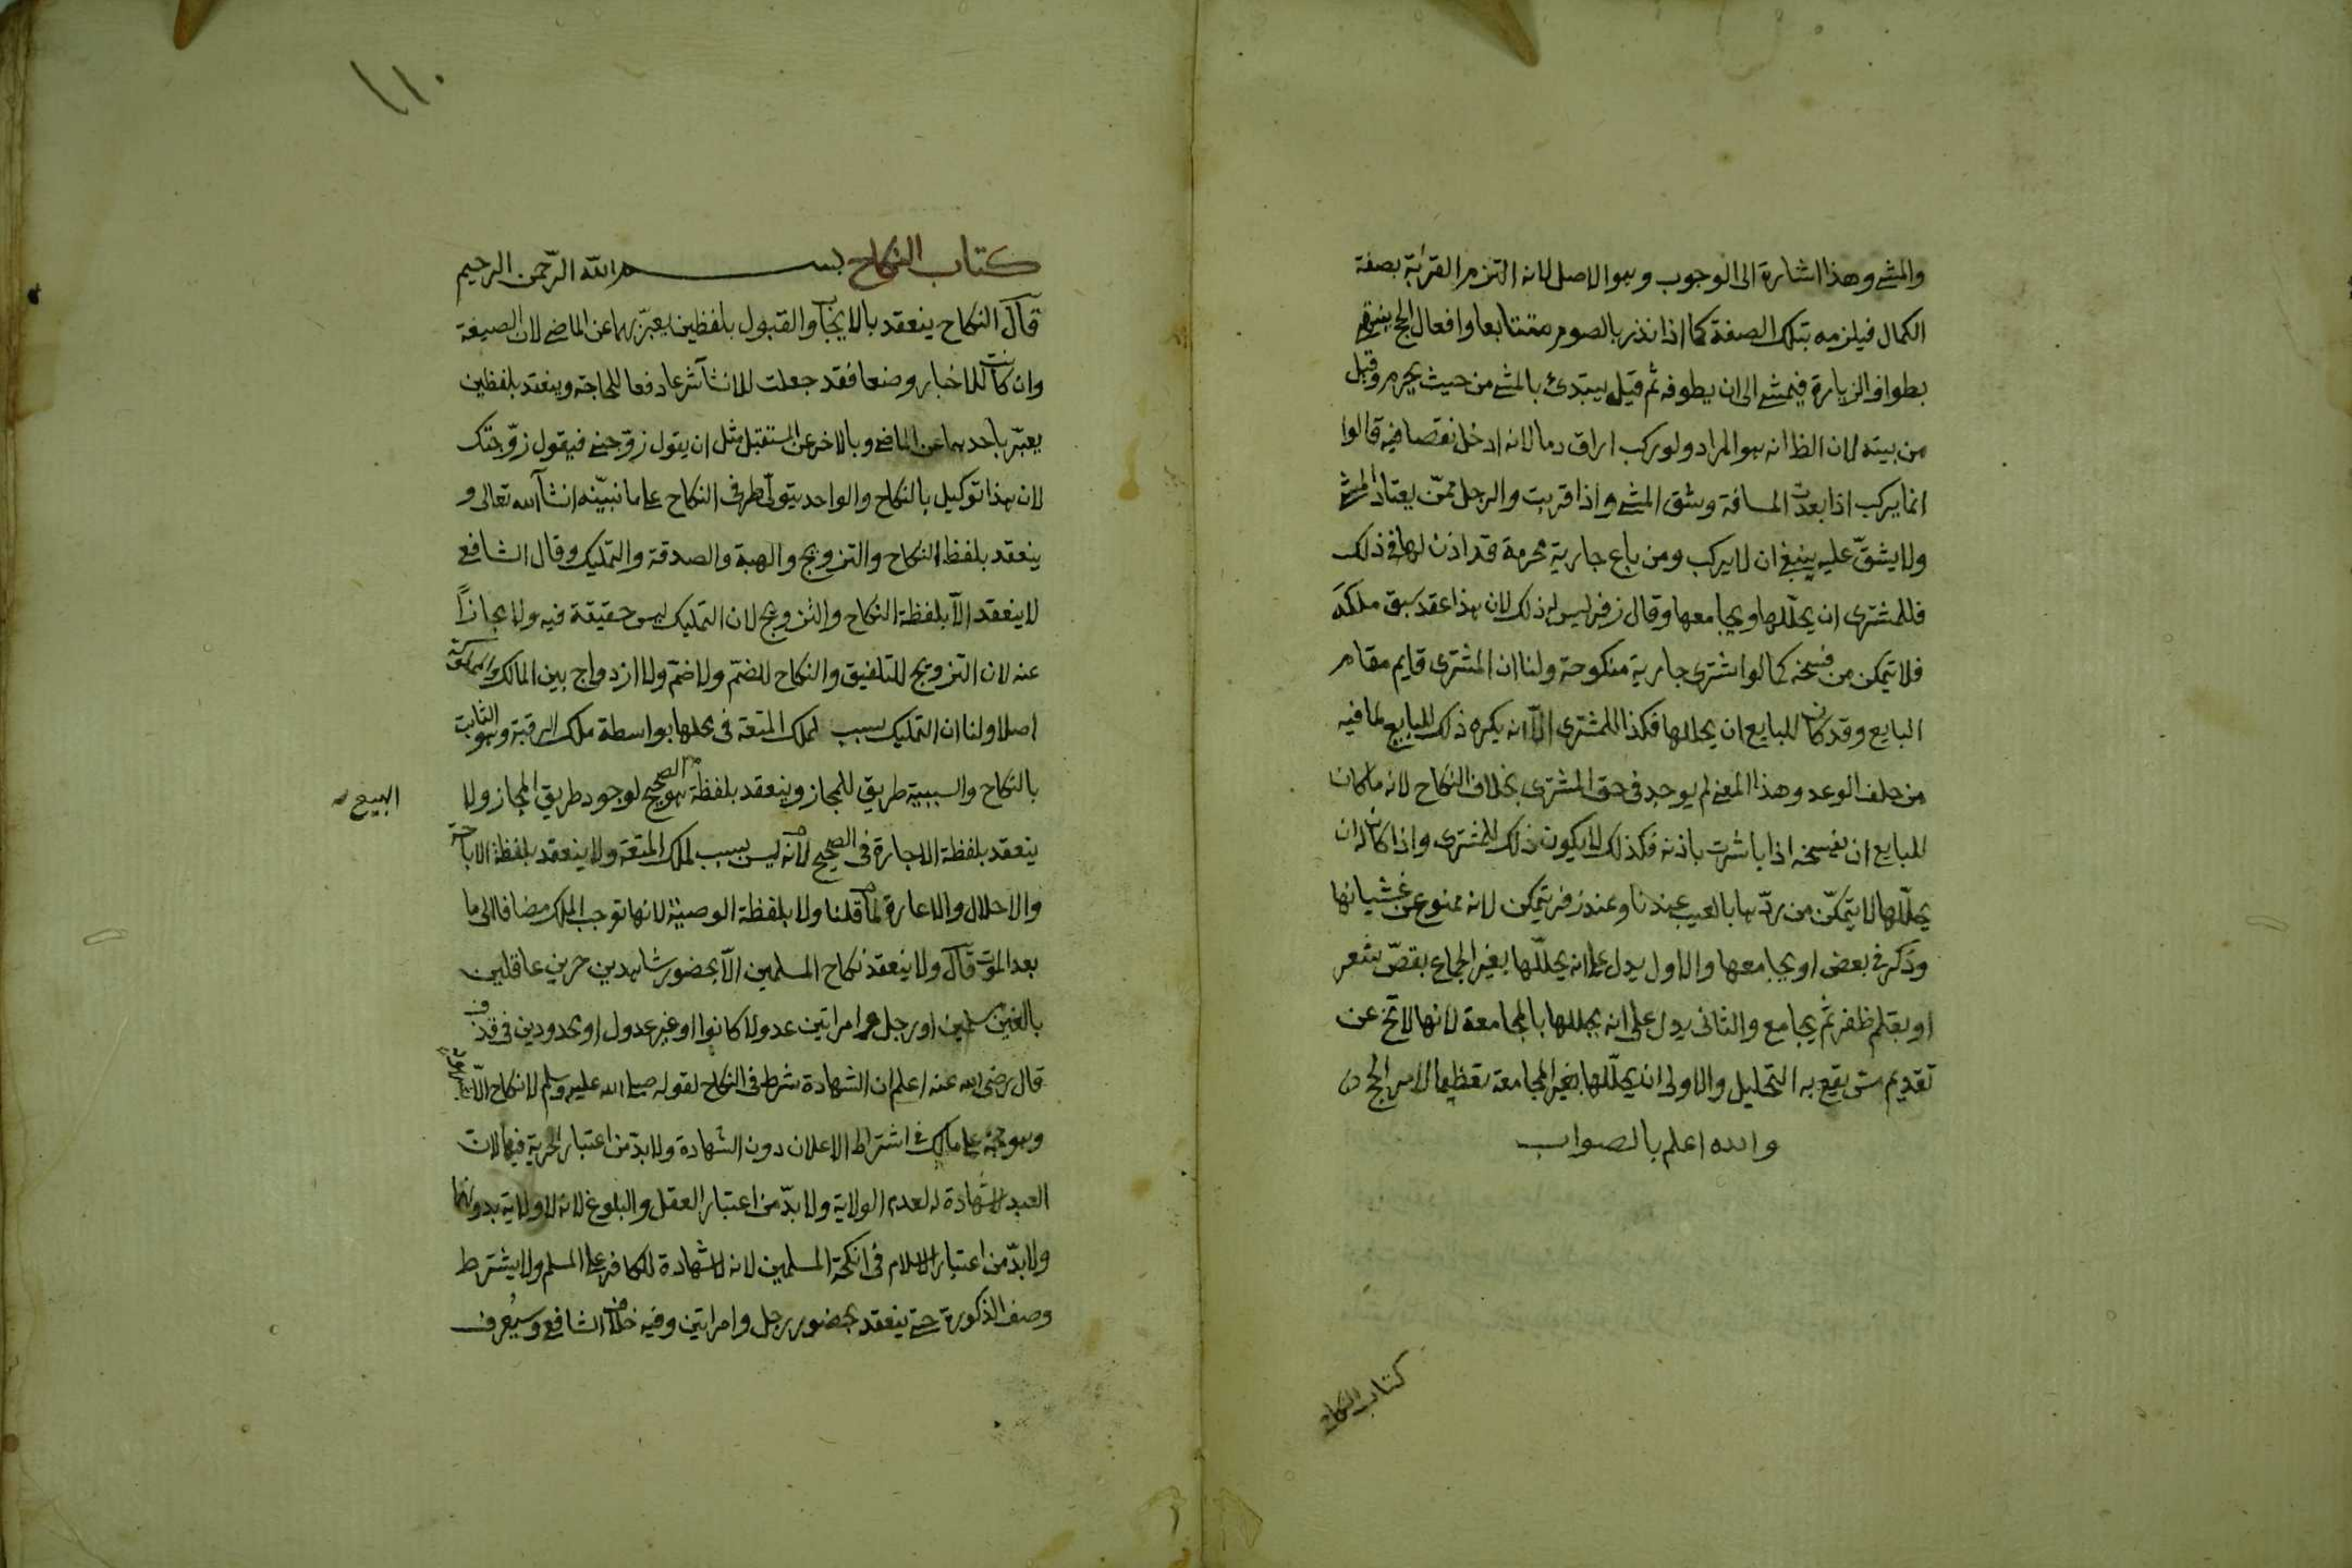 والمشي وهذا اشارة الى الوجوب وهو الاصل لانه التزم القربة بصفة
الكمال فيلزمه بتلك الصفة كما اذا نذر بالصوم متتابعا وافعال الحج ينتهى
بطواف الزيارة فيمشي الى ان يطوفه ثم قيل يبتدئ بالمشي من حيث يحرم وقيل
من بيته لان الظ انه هو المراد ولو ركب اراق دما لانه ادخل نقصا فيه قالوا
انما يركب اذا بعدت المسافة وشق المشي واذا قربت والرجل ممّن يعتاد المشي
ولا يشقّ عليه ينبغي ان لا يركب ومن باع جارية محرمة قد اذن لها في ذلك
فللمشترى ان يحلّلها ويجامعها وقال زفر ليس له ذلك لان هذا عقد سبق ملكه
فلا يتمكن من فسخه كما لو اشترى جارية منكوحة ولنا ان المشترى قايم مقام
البايع وقد كان للبايع ان يحللها فكذا للمشترى الّا انه يكره ذلك للبايع لما فيه
من خلف الوعد وهذا المعنى لم يوجد في حق المشترى بخلاف النكاح لانه ما كان
للبايع ان يفسخه اذا باشرت باذنه فكذلك لا يكون ذلك للمشترى واذا كان له ان
يحلّلها لا يتمكّن من ردّها بالعيب عندنا وعند زفر يتمكن لانه ممنوع عن غشيانها
وذكر في بعض او يجامعها والاول يدل على انه يحلّلها بغير الجماع بقصّ شعر
او بقلم ظفر ثم يجامع والثانى يدل على انه يحللها بالمجامعة لانها لا تخ عن
تقديم مس يقع به التحليل والاولى ان يحلّلها بغير المجامعة تعظيما لامر الحج
والله اعلم بالصواب
كتاب النكاح
١١٠
كتاب النكاح بسم الله الرّحمن الرحيم
قال النكاح ينعقد بالايجاب والقبول بلفظين يعبّر بهما عن الماضي لان الصيغة
وان كانت للاخبار وضعا فقد جعلت للانشآ شرعا دفعا للحاجة وينعقد بلفظين
يعبّر باحدهما عن الماضي وبالاخر عن المستقبل مثل ان يقول زوّجني فيقول زوّجتك
لان هذا توكيل بالنكاح والواحد يتولّى طرفى النكاح على ما نبيّنه ان شآ الله تعالى و
ينعقد بلفظ النكاح والتزويج والهبة والصدقة والتمليك وقال الشافعي
لا ينعقد الّا بلفظة النكاح والتزويج لان التمليك ليس حقيقة فيه ولا مجازاً
عنه لان التزويج للتلفيق والنكاح للضمّ ولا ضمّ ولا ازدواج بين المالك والمملوكة
اصلا ولنا ان التمليك سبب لملك المتعة في محلها بواسطة ملك الرقبة وهو الثابت
بالنكاح والسببية طريق للمجاز وينعقد بلفظة هو الصحيح لوجود طريق المجاز ولا
البيع
ينعقد بلفظة الاجارة في الصحيح لانه ليس بسبب لملك المتعة ولا ينعقد بلفظة الاباحة
والاحلال والاعارة لما قلنا ولا بلفظة الوصيّة لانها توجب الملك مضافا الى ما
بعد الموت قال ولا ينعقد نكاح المسلمين الّا بحضور شاهدين حرين عاقلين
بالغين مسلمين او رجل وامراتين عدولا كانوا او غير عدول او محدودين في قذف
قال رضى الله عنه اعلم ان الشهادة شرط في النكاح لقوله صلى الله عليه وسلم لا نكاح الّا بشهود
وهو حجة على مالك في اشتراط الاعلان دون الشهادة ولا بدّ من اعتبار الحرية فيها لان
العبد لا شهادة له لعدم الولاية ولا بدّ من اعتبار العقل والبلوغ لانه لا ولاية بدونهما
ولا بدّ من اعتبار الاسلام في انكحة المسلمين لانه لا شهادة للكافر على المسلم ولا يشترط
وصف الذكورة حتى ينعقد بحضور رجل وامراتين وفيه خلاف الشافعي وسيُعرف